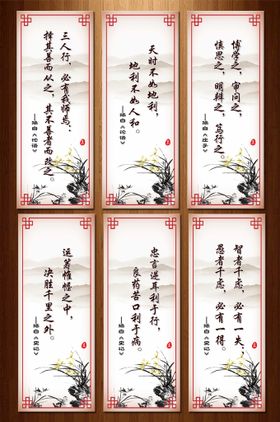 三人行，必有我师焉：
择其善而从之，其不善者而改之。
——摘自《论语》
天时不如地利，
地利不如人和。
——摘自《论语》
博学之，审问之，
慎思之，明辨之，笃行之。
——摘自《庄子》
运筹帷幄之中，
决胜千里之外。
——摘自《史记》
忠言逆耳利于行，
良药苦口利于病。
——摘自《史记》
智者千虑，必有一失；
愚者千虑，必有一得。
——摘自《史记》